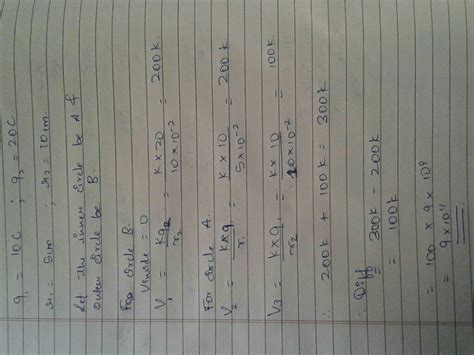 q₁ = 10C ; q₂ = 20C
r₁ = 5cm ; r₂ = 10cm.
Let The inner circle be A &
outer circle be B.
For circle B.
Vinside = 0
V₁ = kq₂ / r₂ = k × 20 / 10 × 10⁻² = 200k
For circle A.
V₂ = k×q₁ / r₁ = k × 10 / 5 × 10⁻² = 200k
V₃ = k×q₁ / r₂ = k × 10 / 10 × 10⁻² = 100k
∴ 200k + 100k = 300k
∴ Diff = 300k - 200k
= 100k
= 100 × 9 × 10⁹
= 9 × 10¹¹